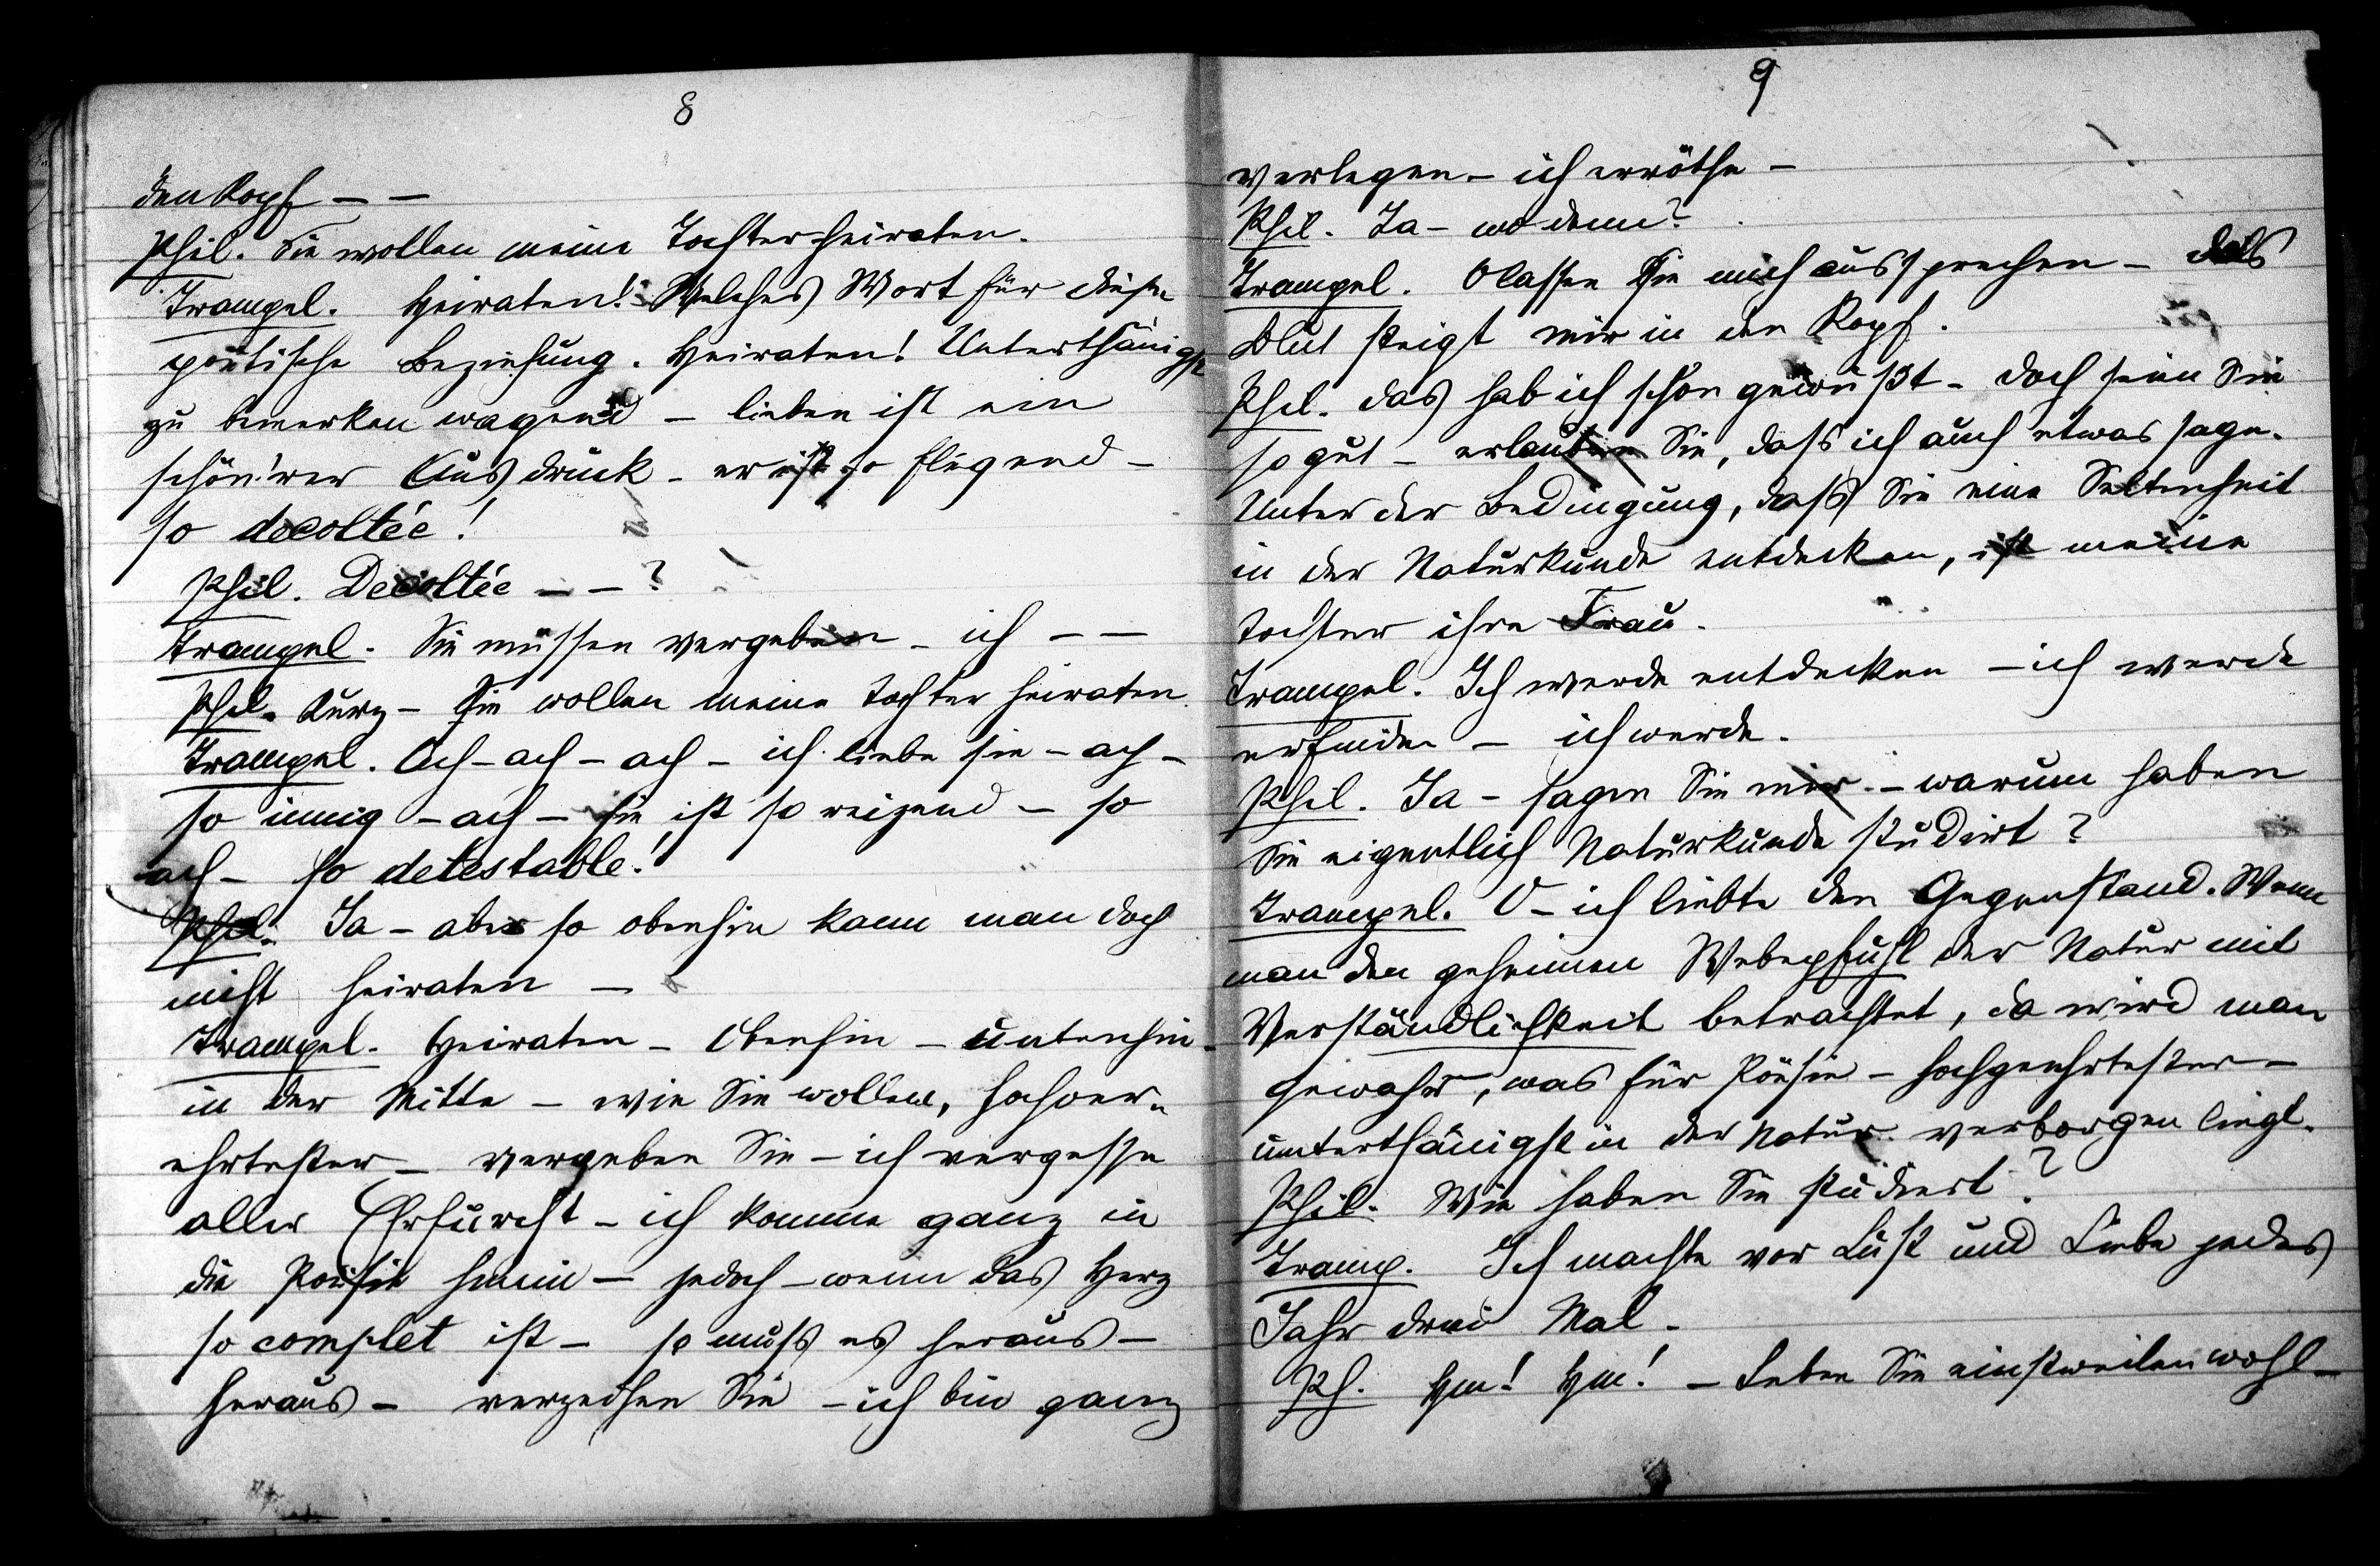 8
den Kopf – –
Phil. Sie wollen meine Tochter heiraten.
Trampel. Heiraten! – Welches Wort für diese
poëtische Beziehung. Heiraten! Unterthänigst
zu bemerken wagend – lieben ist ein
schön'rer Ausdruck – er ist so fliegend –
so decoltée!
Phil. Decoltée – – ?
Trampel. Sie müssen vergeben – ich – –
Phil. Kurz – Sie wollen meine Tochter heiraten.
Trampel. Ach – ach – ach – ich liebe sie – ach –
so innig – ach – sie ist so reizend – so
ach – so detestable!
Phil. Ja – aber so obenhin kann man doch
nicht heiraten –
Trampel. Heiraten – Obenhin – untenhin –
in der Mitte – wie Sie wollen, hochver-
ehrtester – vergeben Sie – ich vergesse
aller Ehrfurcht – ich komme ganz in
die Poësie hinein – jedoch – wenn das Herz
so complet ist – so muss es heraus –
heraus – verzeihen Sie – ich bin ganz
9
verlegen – ich erröthe –
Phil. Ja – wo denn?
Trampel. O lassen Sie mich aussprechen – das
Blut steigt mir in den Kopf.
Phil. das hab ich schon gewußt – doch seien Sie
so gut – erlauben Sie, dass ich auch etwas sage.
Unter der Bedingung, dass Sie eine Seltenheit
in der Naturkunde entdecken, ist meine
Tochter ihre Frau.
Trampel. Ich werde entdecken – ich werde
erfinden – ich werde.
Phil. Ja – sagen Sie mir – warum haben
Sie eigentlich Naturkunde studirt?
Trampel. O – ich liebte den Gegenstand. Wenn
man den geheimen Webepfuhl der Natur mit
Verständlichkeit betrachtet, da wird man
gewahr, was für Poësie – hochgeehrtester –
unterthänigst in der Natur verborgen liegt.
Phil. Wie haben Sie studiert?
Tramp. Ich machte vor Lust und Liebe jedes
Jahr drei Mal.
Ph. Hm! Hm! – Leben Sie einstweilen wohl –